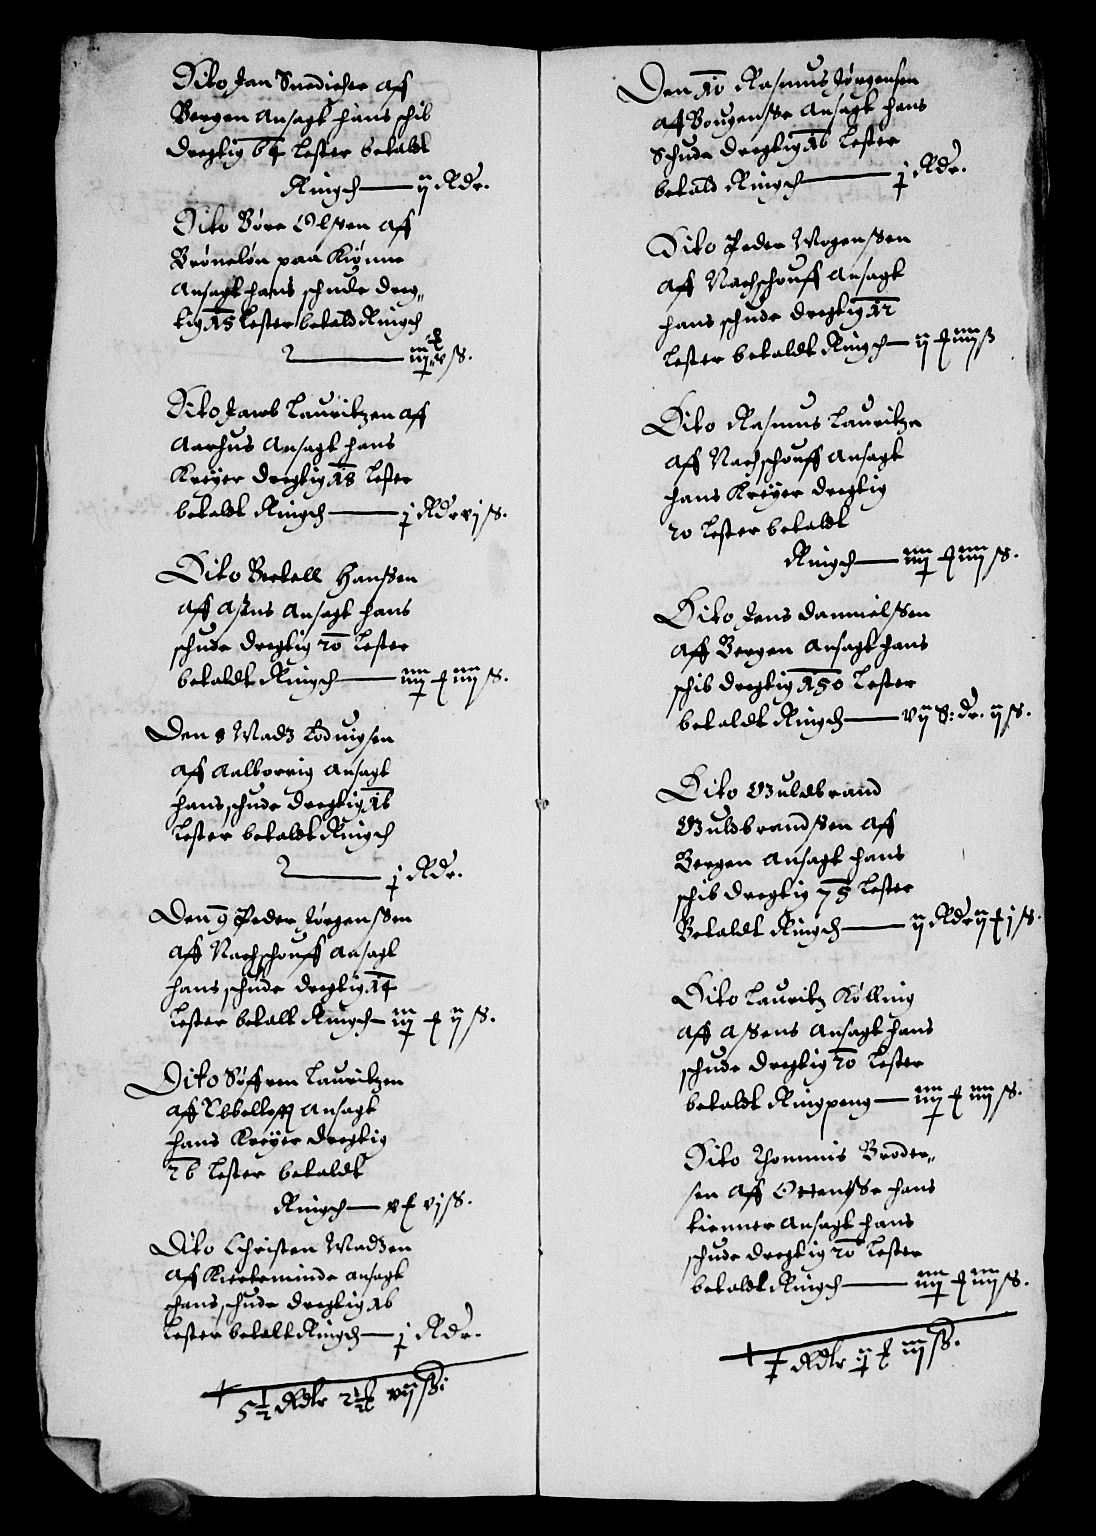 Dito Jan Snedicher aff
Bergen Ansagt hans schib
dregtig 64 Lester betaldt
Ringch — ij Rdr.
Dito Børe Olssen aff
paa
Ansagt hans schude dreg„
tig 15 Lester betald Ringch
iij ꝑ v ß.
Dito Jacob Lauritzen aff
Aarhus Ansagt hans
Kreyer dregtig 18 Lester
betaldt Ringch — j Rdr vj ß.
Dito Bertell Hanssen
aff Assens Ansagt hans
schude dregtig 20 Lester
betaldt Ringch — iiij ꝑ iiij ß.
Den 8 Madz Lodvigsen
aff Aalborrig Ansagt
hans schude dregtig 16
Lester betaldt Ringch
— j Rdr.
Den 9 Peder Jørgenssen
aff Nachschouff Ansagt
hans schude dregtig 14
Lester betalt Ringch — iij ꝑ ij ß.
Dito Søffren Lauritzen
aff Ansagt
hans Kreyer dregtig
26 Lester betaldt
Ringch — v ꝑ vj ß.
Dito Christen Madzen
aff Kierteminde ansagt
hans schude dregtig 16
Lester betalt Ringch — j Rdr.
5½ Rdlr 2½ ꝑ vij ß:
Den 10 Rasmus Jørgensen
aff Bougensse Ansagt hans
Schude dregtig 16 Lester
betald Ringch — j Rdr.
Dito Peder Mogenssen
aff Nachschouff Ansagt
hans schude dregtig 12
Lester betaldt Ringch — ij ꝑ iiij ß
Dito Rasmus Lauritze
aff Nachschouff Ansagt
hans Kreyer dregtig
20 Lester betaldt
Ringch — iiij ꝑ iiij ß.
Dito Jens Dannielssen
aff Bergen Ansagt hans
schib dregtig 150 Lester
betaldt Ringch — vij S: dr. ij ß.
Dito Guldbrand
Guldbrandssen aff
Bergen Ansagt hans
schib dregtig 75 Lester
Betaldt Ringch — ij Rdr ij ꝑ j ß.
Dito Lauritz Kølling
aff Assens Ansagt hans
schude dregtig 20 Lester
betaldt Ringpeng — iiij ꝑ iiij ß.
Dito Thommis Broder„
sen aff Ottensse hans
tienner Ansagt hans
schude dregtig 20 Lester
betaldt Ringch — iiij ꝑ iiij ß.
Rdlr ij ꝑ iij ß.